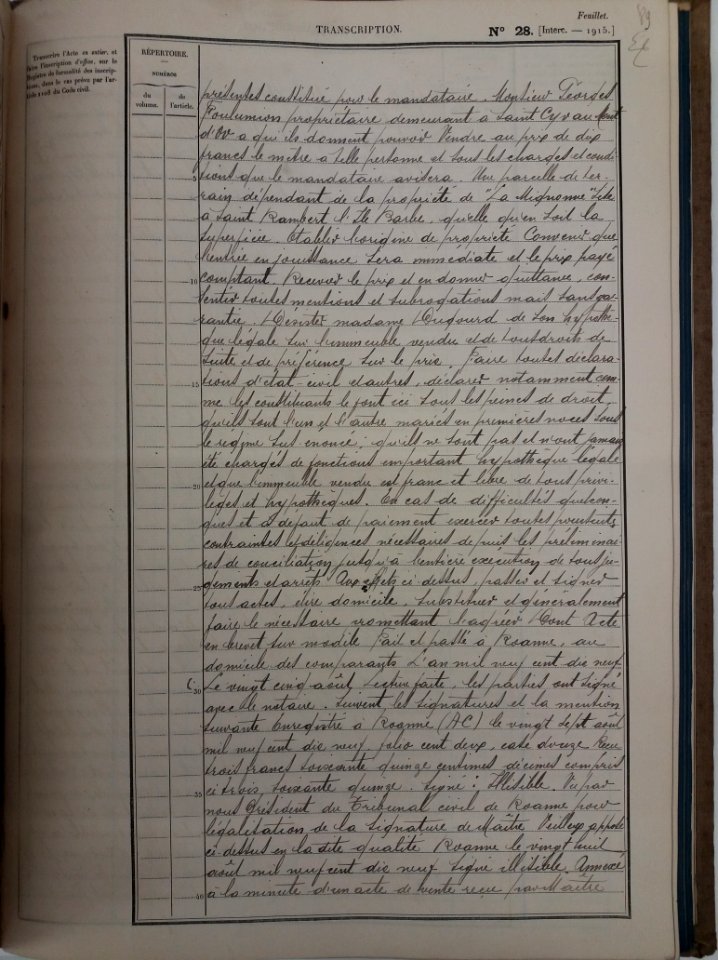 Feuillet.
89
TRANSCRIPTION.
N° 28. [Interc. — 1915.]
Transcrire l'Acte en entier, et
faire l'inscription d'office, sur le
Registre de formalité des inscrip-
tions, dans le cas prévu par l'ar-
ticle 2108 du Code civil.
RÉPERTOIRE.
NUMÉROS
du volume.
de l'article.
présentes constitué pour le mandataire. Monsieur Georges
Foulumion propriétaire demeurant à Saint Cyr au Mont
d'Or a qui ils donnent pouvoir Vendre au prix de dix
francs le mètre a telle personne et sous les charges et condi-
5 tions que le mandataire avisera. Une parcelle de ter-
rain dépendant de la propriété de "La Mignonne" sise
à Saint Rambert l'Ile Barbe, quelle qu'en soit la
superficie. Etablir l'origine de propriété Convenir que
l'entrée en jouissance sera immédiate et le prix payé
10 comptant. Recevoir le prix et en donner quittance, con-
sentir toutes mentions et subrogations mais sans ga-
rantie. Désister madame Dugourd de son hypothè-
que légale sur l'immeuble vendu et de tous droits de
suite et de préférence sur le prix. Faire toutes déclara-
15 tions d'etat-civil et autres, déclarer notamment com-
me les constituants le font ici sous les peines de droit,
qu'ils sont l'un et l'autre mariés en premières noces sous
le régime sus énoncé; qu'ils ne sont pas et n'ont jamais
été chargés de fonctions emportant hypothèque légale
20 et que l'immeuble vendu est franc et libre de tous privi-
lèges et hypothèques. En cas de difficultés quelcon-
ques et a défaut de paiement exercer toutes poursuites,
contraintes et diligences nécessaires depuis les préliminai-
res de conciliation jusqu'à l'entière exécution de tous ju-
25 gements et arrêts Aux effets ci-dessus, passer et signer
tous actes, élire domicile, substituer et généralement
faire le nécessaire promettant l'agréer Dont Acte
en brevet sur modèle Fait et passé à Roanne, au
domicile des comparants L'an mil neuf cent dix neuf
30 Le vingt cinq août, Lecture faite, les parties ont signé
avec le notaire. Suivent les signatures et la mention
suivante Enregistré à Roanne (AC) le vingt sept août
mil neuf cent dix neuf, folio cent deux, case douze Reçu
trois francs soixante quinze centimes décimes compris
35 ci trois, soixante quinze. Signé: Illisible. Vu par
nous Président du Tribunal civil de Roanne pour
légalisation de la signature de Maître Veilleux apposée
ci-dessus en la dite qualité Roanne le vingt huit
août mil neuf cent dix neuf Signé illisible. Annexé
40 à la minute d'un acte de vente reçu par Maître